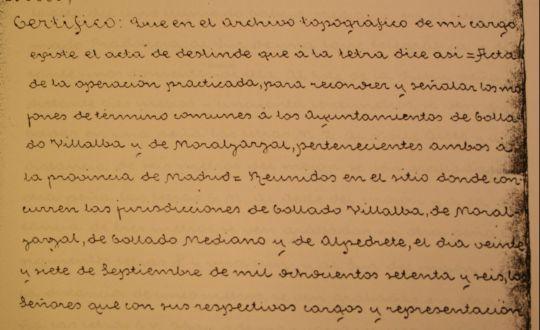 Certifico: Que en el archivo topográfico de mi cargo,
existe el acta de deslinde que á la letra dice asi = Acta
de la operación practicada, para reconocer y señalar los mo
jones de término comunes á los Ayuntamientos de Colla-
do Villalba y de Moralzarzal, pertenecientes ambos á
la provincia de Madrid = Reunidos en el sitio donde con-
curren las jurisdicciones de Collado Villalba, de Moral-
zarzal, de Collado Mediano y de Alpedrete, el dia veinte
y siete de Septiembre de mil ochocientos setenta y seis, los
Señores que con sus respectivos cargos y representación